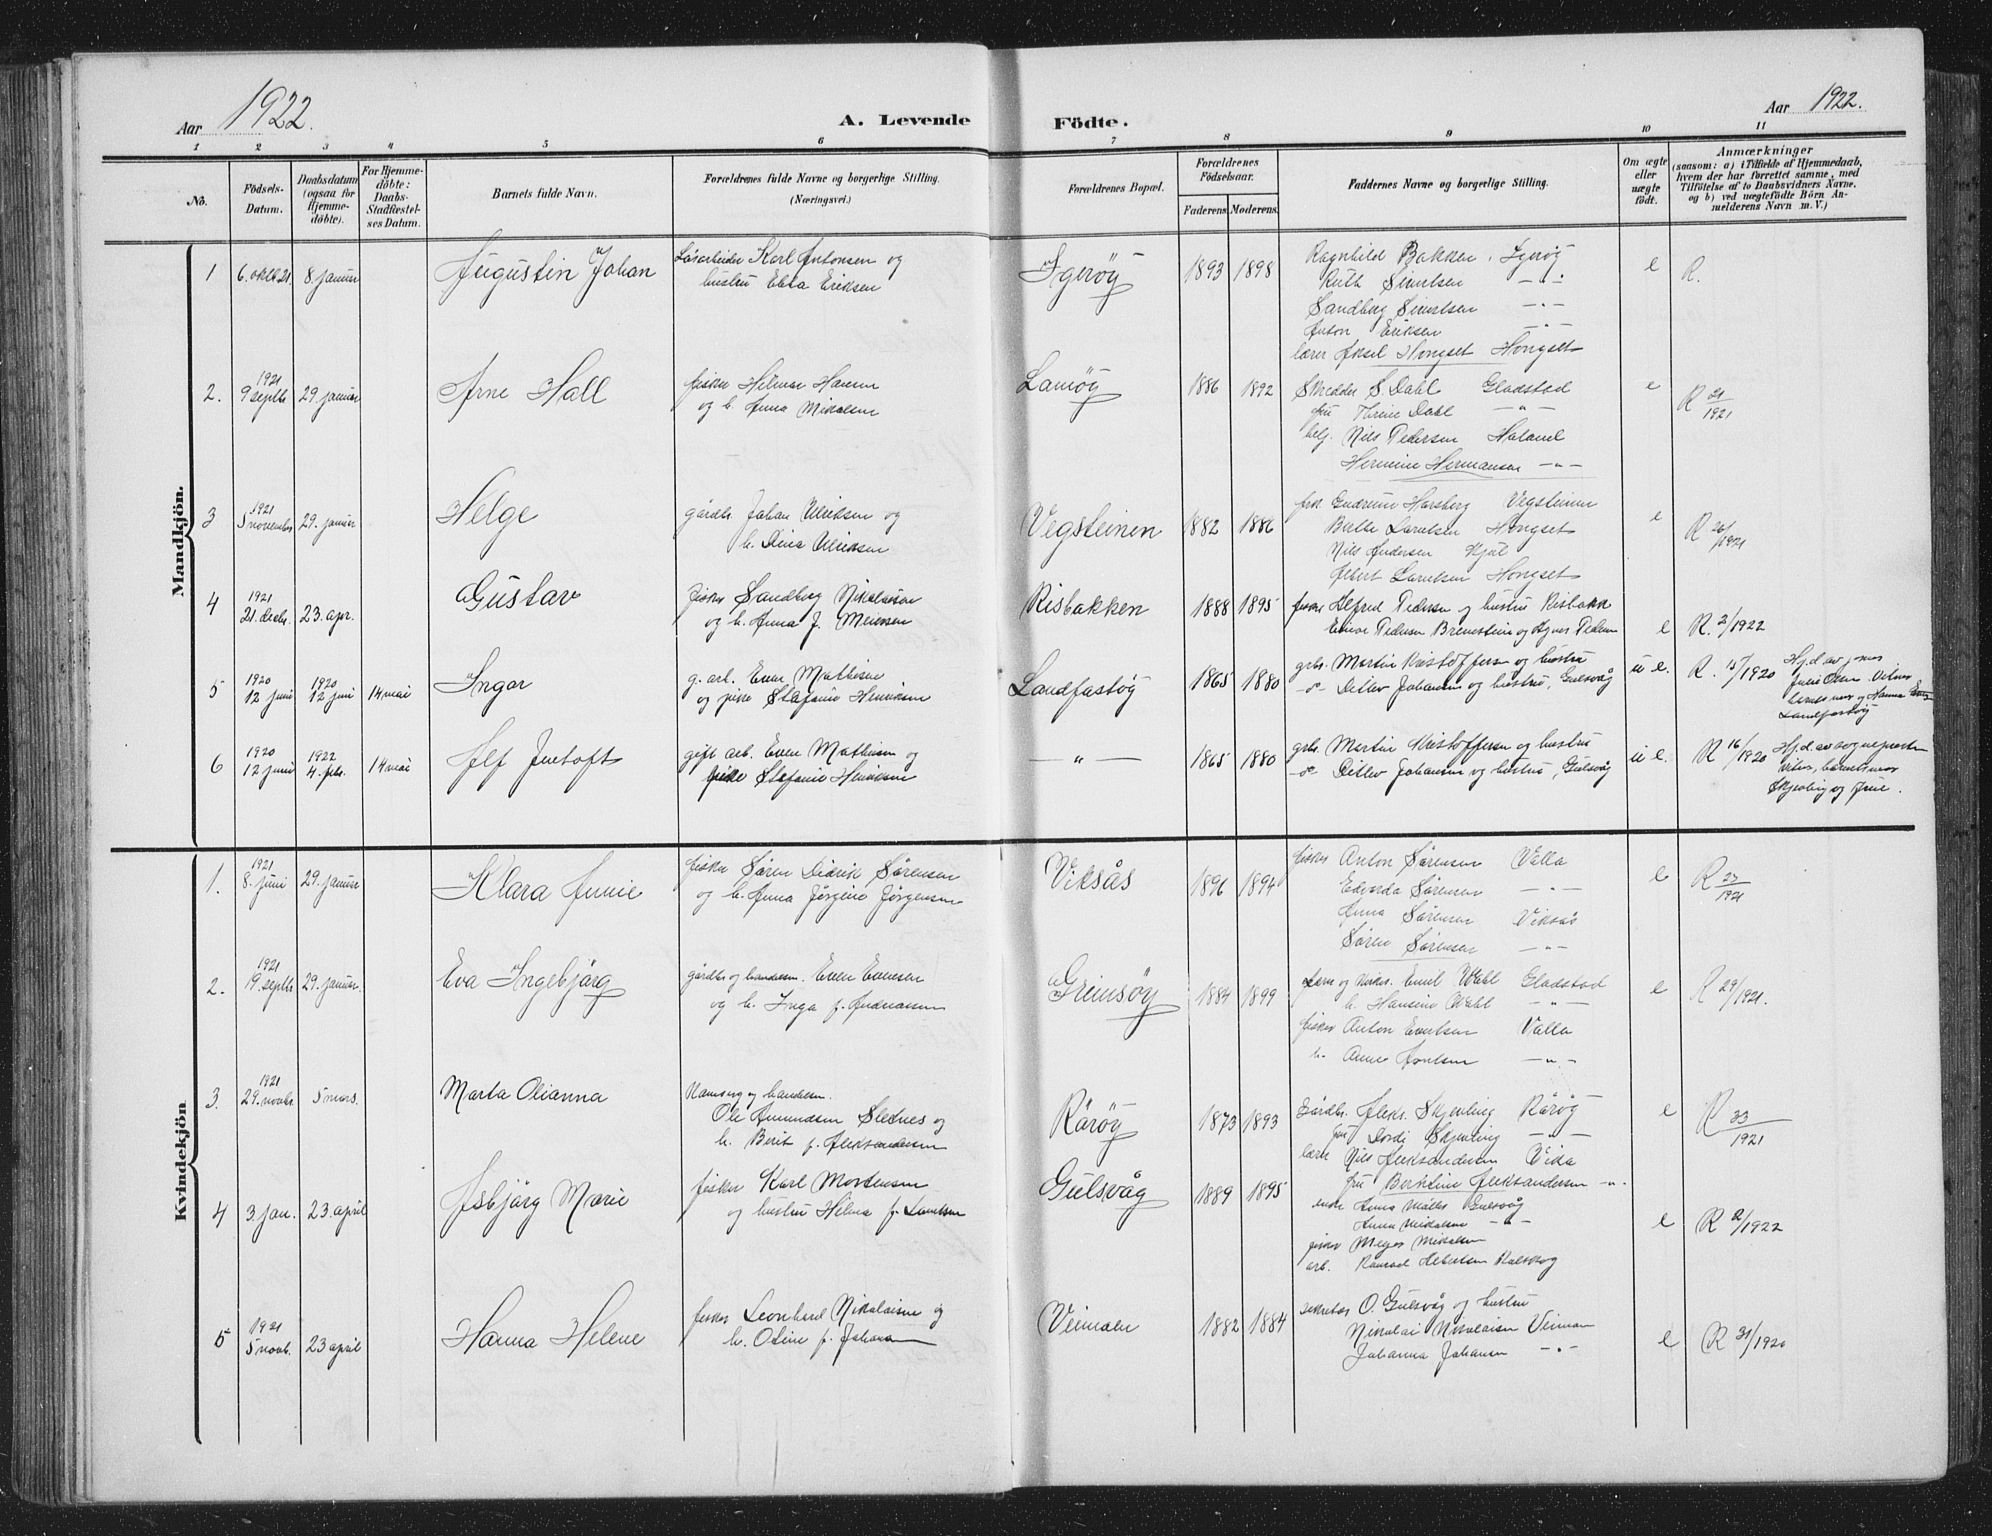 Aar 1922.
A. Levende
Födte.
Aar 1922.
1 2 3 4 5 6 7 8 9 10 11
No.
Födsels-
Datum.
Daabsdatum
(ogsaa for
Hjemme-
döbte).
For Hjemme-
döbte:
Daabs-
Stadfæstel-
ses Datum.
Barnets fulde Navn.
Forældrenes fulde Navne og borgerlige Stilling.
(Næringsvei.)
Forældrenes Bopæl.
Forældrenes
Födselsaar.
Faderens. Moderens.
Faddernes Navne og borgerlige Stilling.
Om ægte
eller
uægte
födt.
Anmærkninger
(saasom: a) i Tilfælde af Hjemmedaab,
hvem der har forrettet samme, med
Tilföielse af to Daabsvidners Navne,
og b) ved uægtefödte Börn An-
melderens Navn m. V.)
Mandkjön.
1 6. oktb. 21. 8. januar Augustin Johan
Løsarbeider Karl Antonsen og
hustru Ebba Eriksen
Igerøy 1893 1898
Ragnhild Bakken, Igerøy
Ruth Simelsen — " —
Sandberg Simelsen — " —
Anton Eriksen — " —
lærer Aksel Hongset Hongset
e R.
2. 1921 9 septb 29. januar Arne Hall
fisker Hilmar Hansen
og h. Anna Mikalsen
Lamøy 1886 1892
Skredder S. Dahl Gladstad
fru Thrine Dahl — " —
Nils Pedersen Haland
Hermine Hermansen — " —
e R 21/1921
3 1921 5 november 29. januar Helge
gårdbr. Johan Ulriksen og
h. Dina Ulriksen
Vegsteinen 1882 1886
frk. Gudrun Harsberg Vegsteinen
Berthe Lorntsen Hongset
Nils Andersen Kjul
Albert Lorntsen Hongset
e R 26/1921
4 1921 21. decbr. 23. apr. Gustav
fisker Sandberg Nikolaisen
og h. Anna f.
Risbakken 1888 1895
fisker Alfred Pedersen og hustru Risbakk
Einar Pedersen Bremstein og Agnes Pedersen
e R. 2/1922
5 1920 12 juni 1920 12 juni 14 mai Ingar
g. arb. Even Mathisen
og pike Stefanie Henriksen
Landfastøy 1865 1880
grb. Martin Kristoffersen og hustru
— do — Ditlev Johansen og hustru, Gulsvåg
u e. R. 15/1920
Hj.d. av
Olsen. Vitner
barnets mor og Hanna
Landfastøy
6 1920 12 juni 1922 4. feb. 14 mai Alf Jentoft
gift arb. Even Mathisen og
pike Stefanie Henriksen
— " — 1865 1880
grb. Martin Kristoffersen og hustru
— do — Ditlev Johansen og hustru, Gulsvåg
u e. R 16/1920
Hj.d. av sogneprest
vitner, barnets mor
Skjevling og frue.
Kvindekjön
1. 1921 8. juni 29. januar Klara Annie
fisker Søren Didrik Sørensen
og h. Anna Jørgine Jørgensen
Viksås 1896 1894
fisker Anton Sørensen Valla
Edvarda Sørensen — " —
Anna Sørensen Viksås
Søren Sørensen — " —
e R 23/1921
2. 1921 19. septb 29. januar. Eva Ingebjørg
gårdbr og handelsm. Even Evensen
og h. Inga f. Andreassen
Grimsøy 1884 1899
Lærer og kirkes. Emil Wahl Gladstad
h. Hansine Wahl — " —
fisker Anton Evertsen Valla
h. Anne — " —
e R 29/1921.
3. 1921 29. novbr. 5 mars. Marta Olianna
og handelsm.
Ole Amundsen Sletnes og
h. Berit f. Aleksandersen
Rårøy 1873 1893
Gårdbr. Aleks. Skjevling Rårøy
fru Dordi Skjevling — " —
lærer Nils Aleksandersen Vida
fru Berntine Aleksandersen — " —
e R 33/1921
4 3. jan. 23. april Asbjørg Marie
fisker Karl Mortensen
og hustru Helma f. Lorntsen
Gulsvåg 1889 1895
enke Anna Gulsvåg
Anna Mikalsen — " —
fisker Meyer Mikalsen
arb. Konrad
e R 2/1922
5 1921 5 novb. 23 april Hanna Helene
fisker Leonhard Nikolaisen og
h. Oline f. Johansen
Veimoen 1882 1884
sekretær O. Gulsvåg og hustru
Nikolai Nikolaisen
Johanna Johansen — " —
e R 31/1920